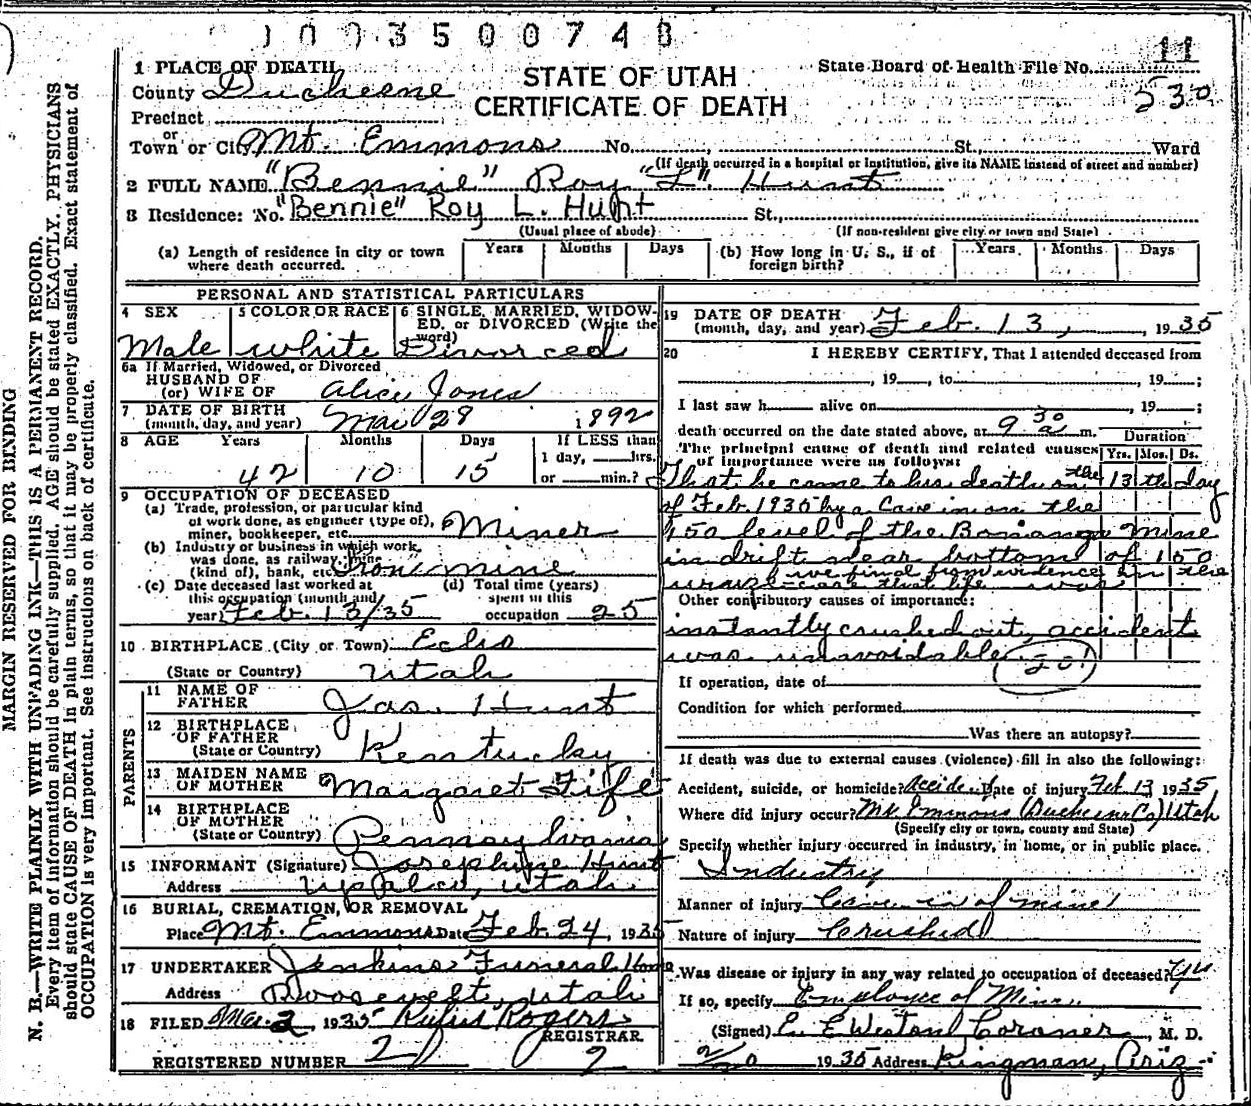 1003500748
11
1 PLACE OF DEATH
STATE OF UTAH
CERTIFICATE OF DEATH
State Board of Health File No.
530
County Duchesne
Precinct
or
Town or City Mt. Emmons No. St., Ward
(If death occurred in a hospital or Institution, give its NAME instead of street and number)
2 FULL NAME "Bennie" Roy "L". Hunt
3 Residence: No. "Bennie" Roy L. Hunt St.,
(Usual place of abode) (If non-resident give city or town and State)
(a) Length of residence in city or town where death occurred. Years Months Days
(b) How long in U. S., if of foreign birth? Years Months Days
PERSONAL AND STATISTICAL PARTICULARS
4 SEX Male
5 COLOR OR RACE white
6 SINGLE, MARRIED, WIDOWED, or DIVORCED (Write the word) Divorced
6a If Married, Widowed, or Divorced
HUSBAND OF
(or) WIFE OF Alice Jones
7 DATE OF BIRTH
(month, day, and year) Mar 28 1892
8 AGE Years Months Days If LESS than
1 day, hrs.
42 10 15 or min.?
9 OCCUPATION OF DECEASED
(a) Trade, profession, or particular kind of work done, as engineer (type of), miner, bookkeeper, etc. Miner
(b) Industry or business in which work was done, as railway, mine (kind of), bank, etc. mine
(c) Date deceased last worked at this occupation (month and year) Feb. 13/35
(d) Total time (years) spent in this occupation 25
10 BIRTHPLACE (City or Town) Echo
(State or Country) Utah
PARENTS
11 NAME OF FATHER Jas. Hunt
12 BIRTHPLACE OF FATHER
(State or Country) Kentucky
13 MAIDEN NAME OF MOTHER Margaret Fife
14 BIRTHPLACE OF MOTHER
(State or Country) Pennsylvania
15 INFORMANT (Signature) Josephine Hunt
Address Upalco, Utah
16 BURIAL, CREMATION, OR REMOVAL
Place Mt. Emmons Date Feb. 24, 1935
17 UNDERTAKER Jenkins Funeral Home
Address Roosevelt, Utah
18 FILED Mar. 2, 1935 Rufus Rogers
REGISTRAR
REGISTERED NUMBER 2 2
19 DATE OF DEATH
(month, day, and year) Feb. 13, 1935
20 I HEREBY CERTIFY, That I attended deceased from
, 19 , to , 19 ;
I last saw h alive on , 19 ;
death occurred on the date stated above, at 9 30 a m.
The principal cause of death and related causes of importance were as follows:
Duration
Yrs. Mos. Ds.
That he came to his death on the 13th day
of Feb 1935 by a Cave in on the
150 level of the Bonanza Mine
in drift near bottom of 150
we find from evidence in the
case that life was
Other contributory causes of importance:
instantly crushed out, accident
was unavoidable
201
If operation, date of
Condition for which performed
Was there an autopsy?
If death was due to external causes (violence) fill in also the following:
Accident, suicide, or homicide? Accident Date of injury Feb 13 1935
Where did injury occur? Mt. Emmons (Duchesne Co) Utah
(Specify city or town, county and State)
Specify whether injury occurred in industry, in home, or in public place.
Industry
Manner of injury Cave in of mine
Nature of injury Crushed
Was disease or injury in any way related to occupation of deceased? Yes
If so, specify Employee of Mine
(Signed) E. E Weston Coroner, M. D.
2/20 1935 Address Kingman, Ariz
MARGIN RESERVED FOR BINDING
N. B.—WRITE PLAINLY WITH UNFADING INK—THIS IS A PERMANENT RECORD.
Every item of information should be carefully supplied. AGE should be stated EXACTLY. PHYSICIANS
should state CAUSE OF DEATH in plain terms, so that it may be properly classified. Exact statement of
OCCUPATION is very important. See instructions on back of certificate.